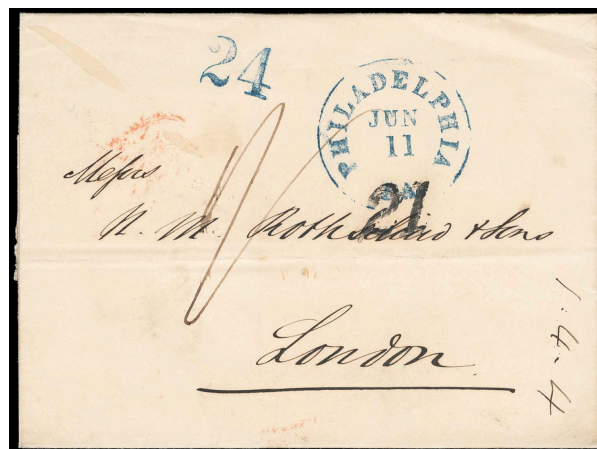 24
PHILADELPHIA
JUN
11
21
Messrs
N. M. Rothschild & Sons
London